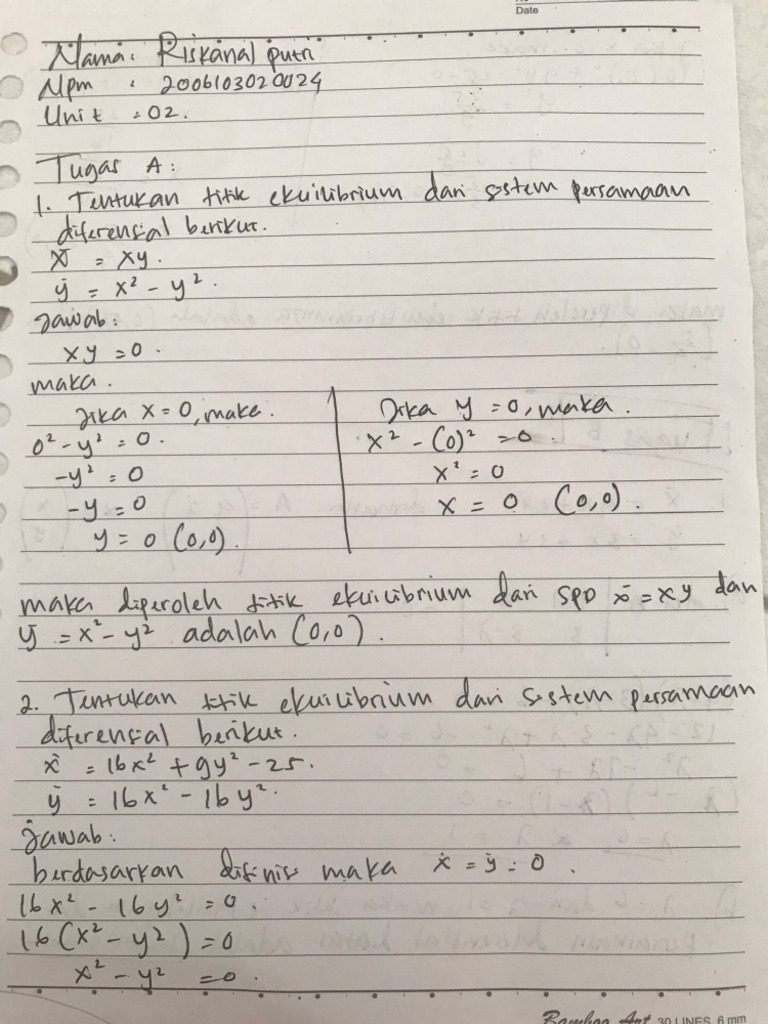 Date
Nama: Riskanal putri
Npm : 2006103020024
Unit : 02.
Tugas A:
1. Tentukan titik ekuilibrium dari sistem persamaan
diferensial berikut.
ẋ = xy.
ẏ = x² - y².
Jawab:
xy = 0.
maka.
Jika x = 0, maka.
0² - y² = 0.
-y² = 0
-y = 0
y = 0 (0,0).
Jika y = 0, maka.
x² - (0)² = 0.
x² = 0
x = 0 (0,0).
maka diperoleh titik ekuilibrium dari SPD ẋ = xy dan
ẏ = x² - y² adalah (0,0).
2. Tentukan titik ekuilibrium dari sistem persamaan
diferensial berikut.
ẋ = 16x² + 9y² - 25.
ẏ = 16x² - 16y².
Jawab:
berdasarkan difinisi maka ẋ = ẏ = 0.
16x² - 16y² = 0.
16(x² - y²) = 0
x² - y² = 0.
30 LINES, 6 mm